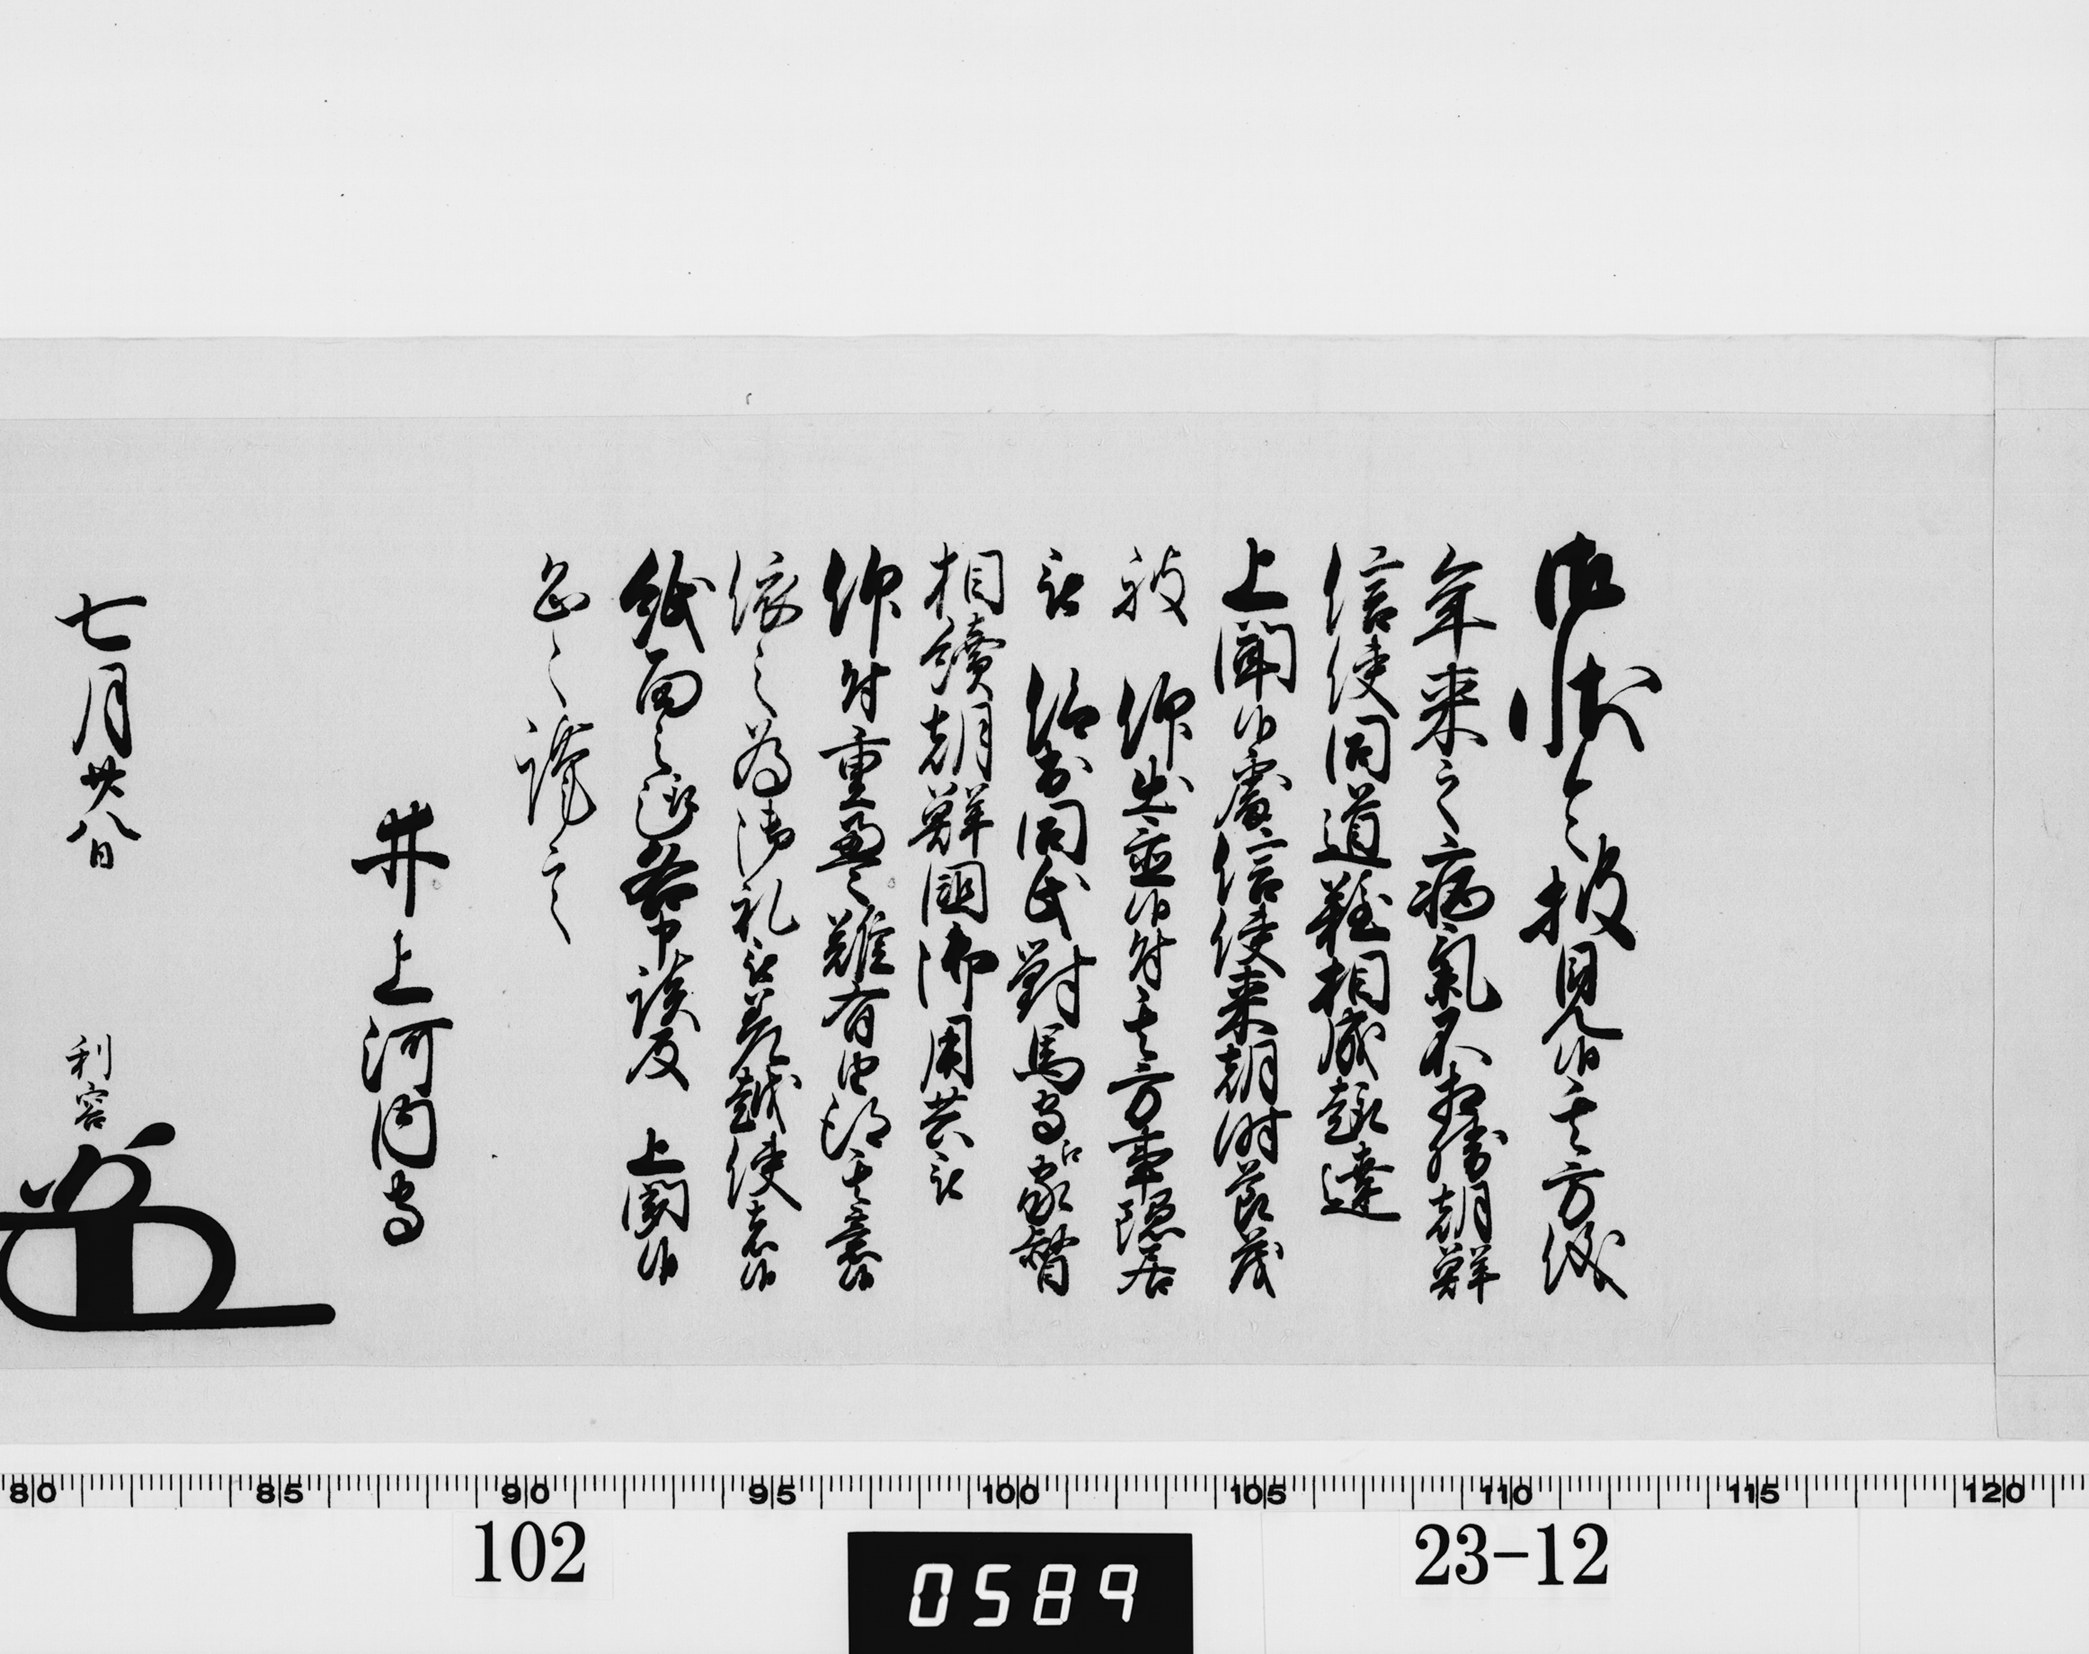 御状令披見候其方儀
年来之病氣不相勝朝鮮
信使同道難相成趣達
上聞候處信使来朝時節茂
被 仰出並候付其方事隠居
被 仰出同氏對馬守江家督
相續朝鮮国御用共被
仰付重畳難有由得其意候
依之為御礼被差越使者候
紙面之趣各申談及 上聞候
恐々謹言
井上河内守
七月廿八日
利容
80 85 90 95 100 105 110 115 120
102
0589
23-12